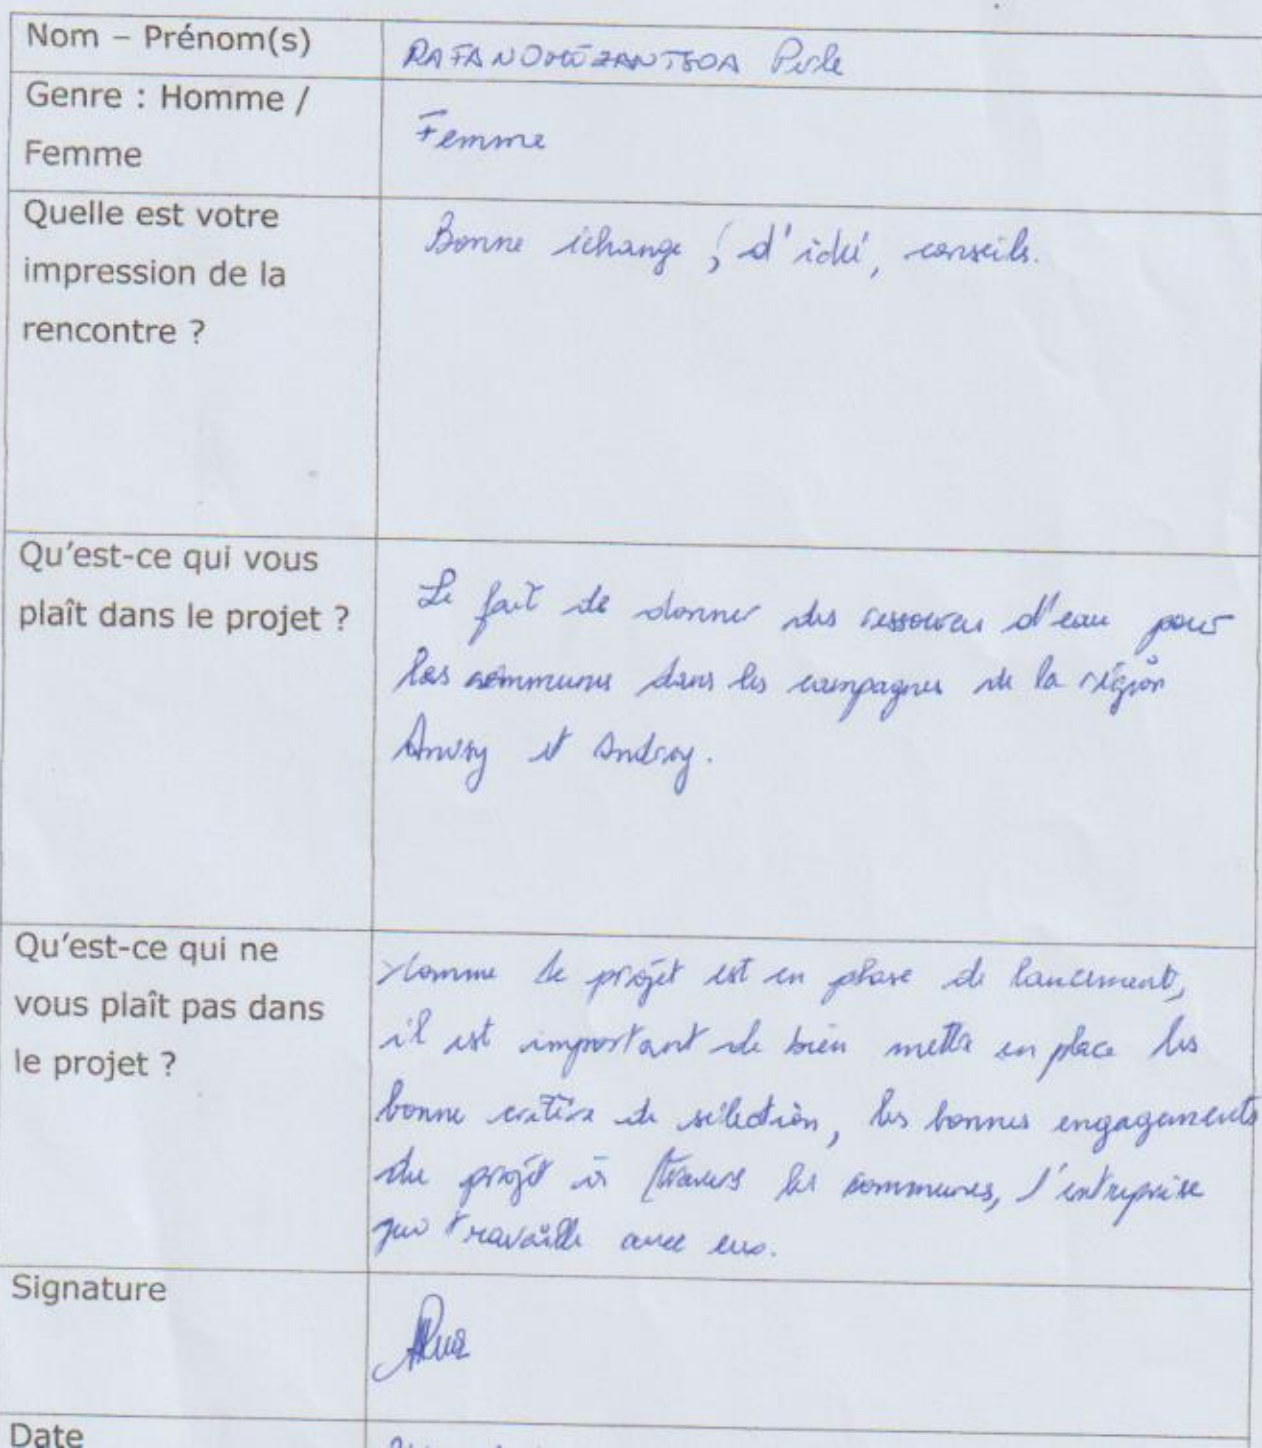 Nom – Prénom(s)
RAFANOMEZANTSOA Perle
Genre : Homme /
Femme
Femme
Quelle est votre
impression de la
rencontre ?
Bonne échange, d'idé, conseils.
Qu'est-ce qui vous
plaît dans le projet ?
Le fait de donner des ressources d'eau pour
les communes dans les campagnes de la région
Anosy et Androy.
Qu'est-ce qui ne
vous plaît pas dans
le projet ?
Comme le projet est en phase de lancement,
il est important de bien mettre en place les
bonne critère de sélection, les bonnes engagements
du projet à travers les communes, l'entreprise
qui travaille avec eux.
Signature
Date